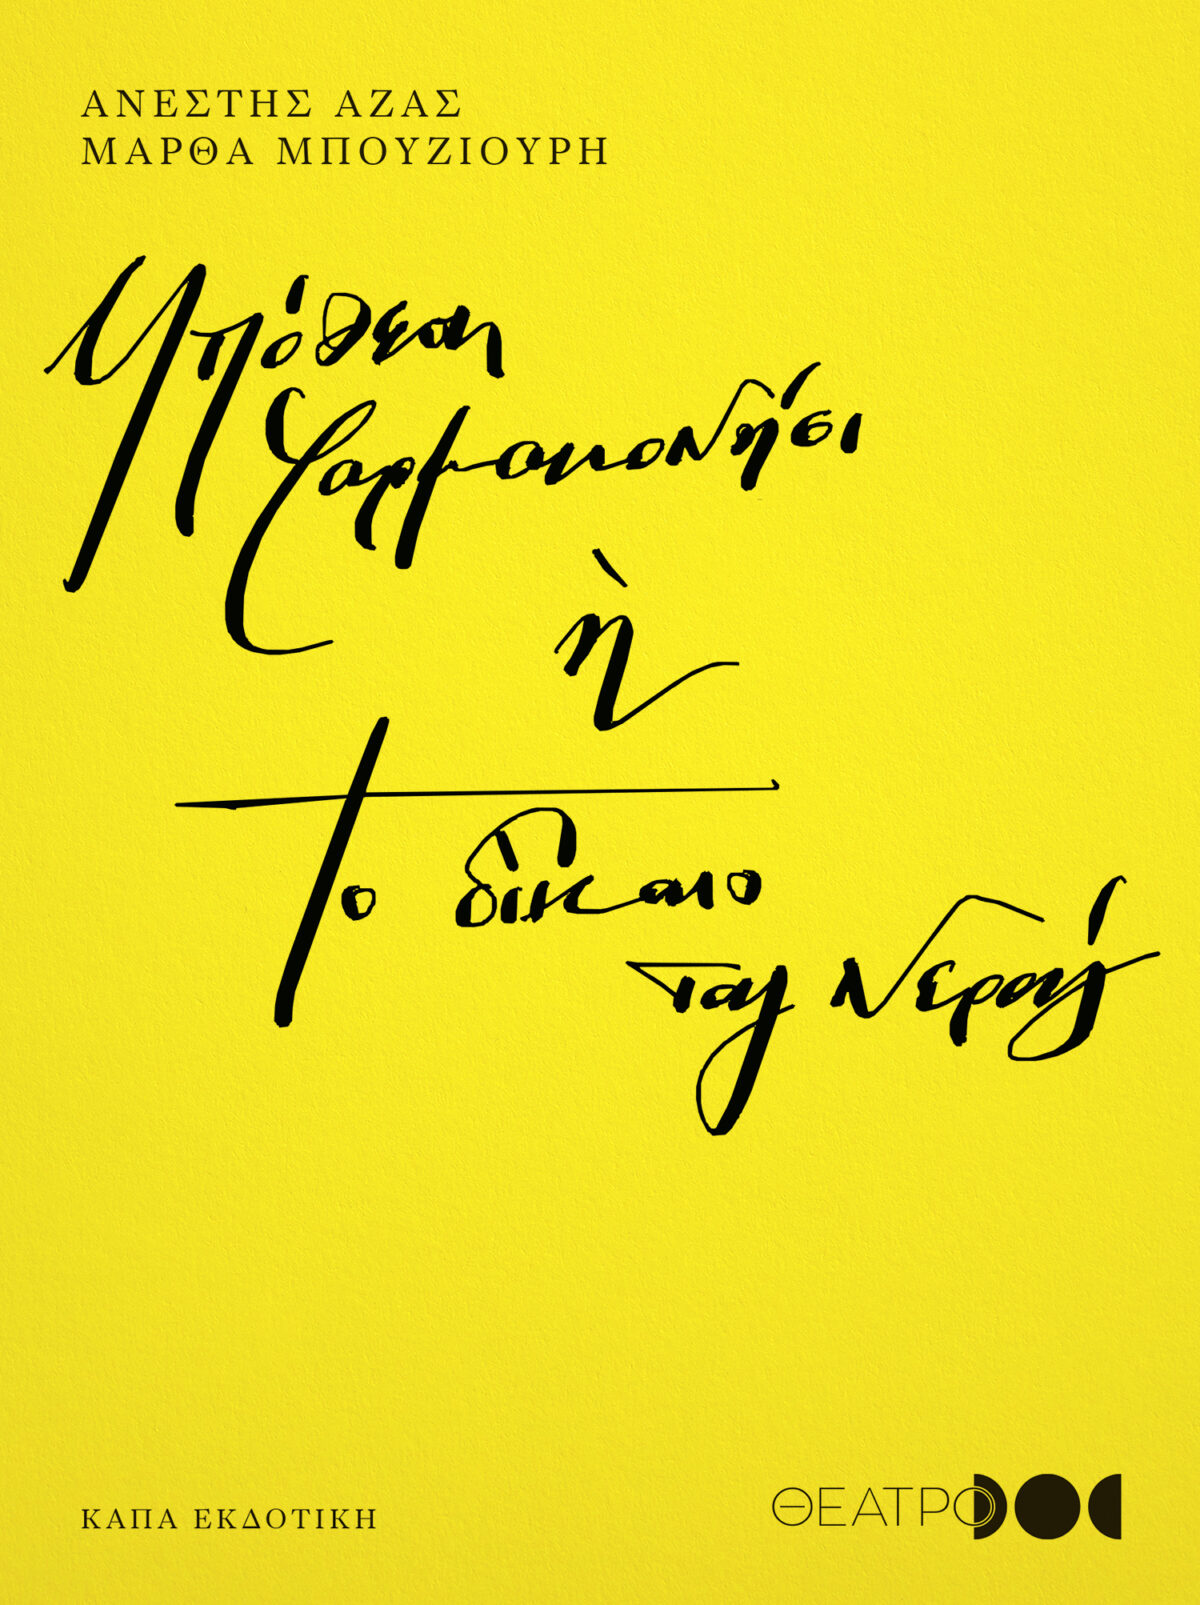 ΑΝΕΣΤΗΣ ΑΖΑΣ
ΜΑΡΘΑ ΜΠΟΥΖΙΟΥΡΗ
Υπόθεση
Φαρμακονήσι
ὴ
Το δίκαιο
του νερού
ΚΑΠΑ ΕΚΔΟΤΙΚΗ
ΘΕΑΤΡΟ DOC